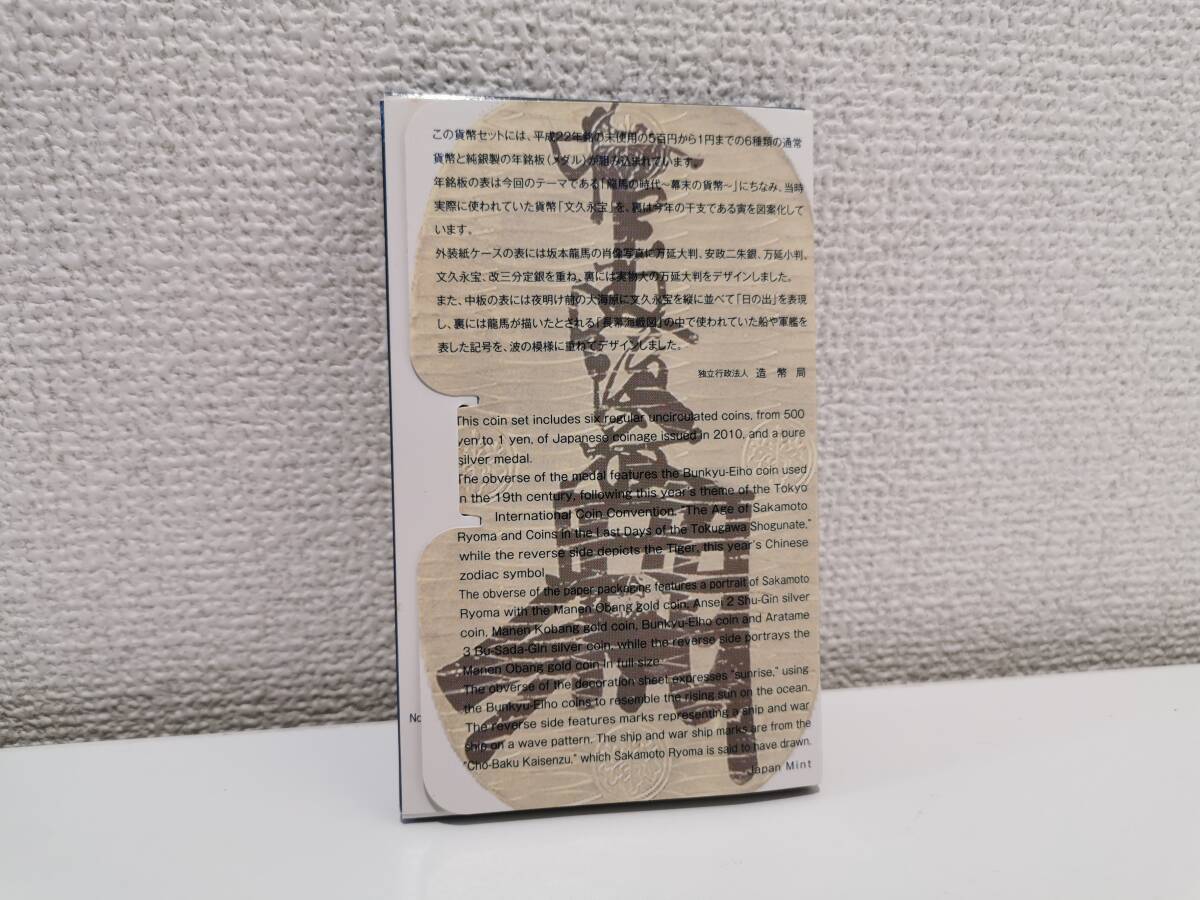 この貨幣セットには、平成22年銘の未使用の5百円から1円までの6種類の通常
貨幣と純銀製の年銘板(メダル)が組み込まれています。
年銘板の表は今回のテーマである「龍馬の時代~幕末の貨幣~」にちなみ、当時
実際に使われていた貨幣「文久永宝」を、裏は今年の干支である寅を図案化して
います。
外装紙ケースの表には坂本龍馬の肖像写真に万延大判、安政二朱銀、万延小判、
文久永宝、改三分定銀を重ね、裏には実物大の万延大判をデザインしました。
また、中板の表には夜明け前の大海原に文久永宝を縦に並べて「日の出」を表現
し、裏には龍馬が描いたとされる「長幕海戦図」の中で使われていた船や軍艦を
表した記号を、波の模様に重ねてデザインしました。
独立行政法人 造幣局
This coin set includes six regular uncirculated coins, from 500
yen to 1 yen, of Japanese coinage issued in 2010, and a pure
silver medal.
The obverse of the medal features the Bunkyu-Eiho coin used
in the 19th century, following this year's theme of the Tokyo
International Coin Convention, "The Age of Sakamoto
Ryoma and Coins in the Last Days of the Tokugawa Shogunate,"
while the reverse side depicts the Tiger, this year's Chinese
zodiac symbol.
The obverse of the paper packaging features a portrait of Sakamoto
Ryoma with the Manen Obang gold coin, Ansei 2 Shu-Gin silver
coin, Manen Kobang gold coin, Bunkyu-Eiho coin and Aratame
3 Bu-Sada-Gin silver coin, while the reverse side portrays the
Manen Obang gold coin in full size.
The obverse of the decoration sheet expresses "sunrise," using
the Bunkyu-Eiho coins to resemble the rising sun on the ocean.
The reverse side features marks representing a ship and war
ship on a wave pattern. The ship and war ship marks are from the
"Cho-Baku Kaisenzu," which Sakamoto Ryoma is said to have drawn.
Japan Mint
No